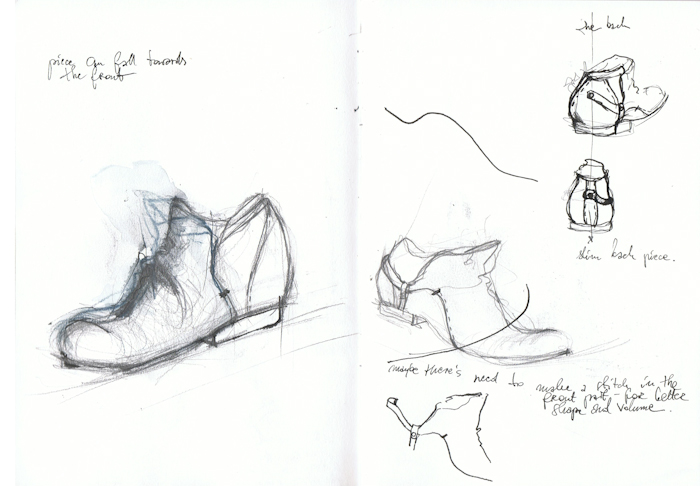 piece can fall towards
the front
the back
slim back piece.
maybe there's need to make a stitch in the
front part - for better
shape and volume.